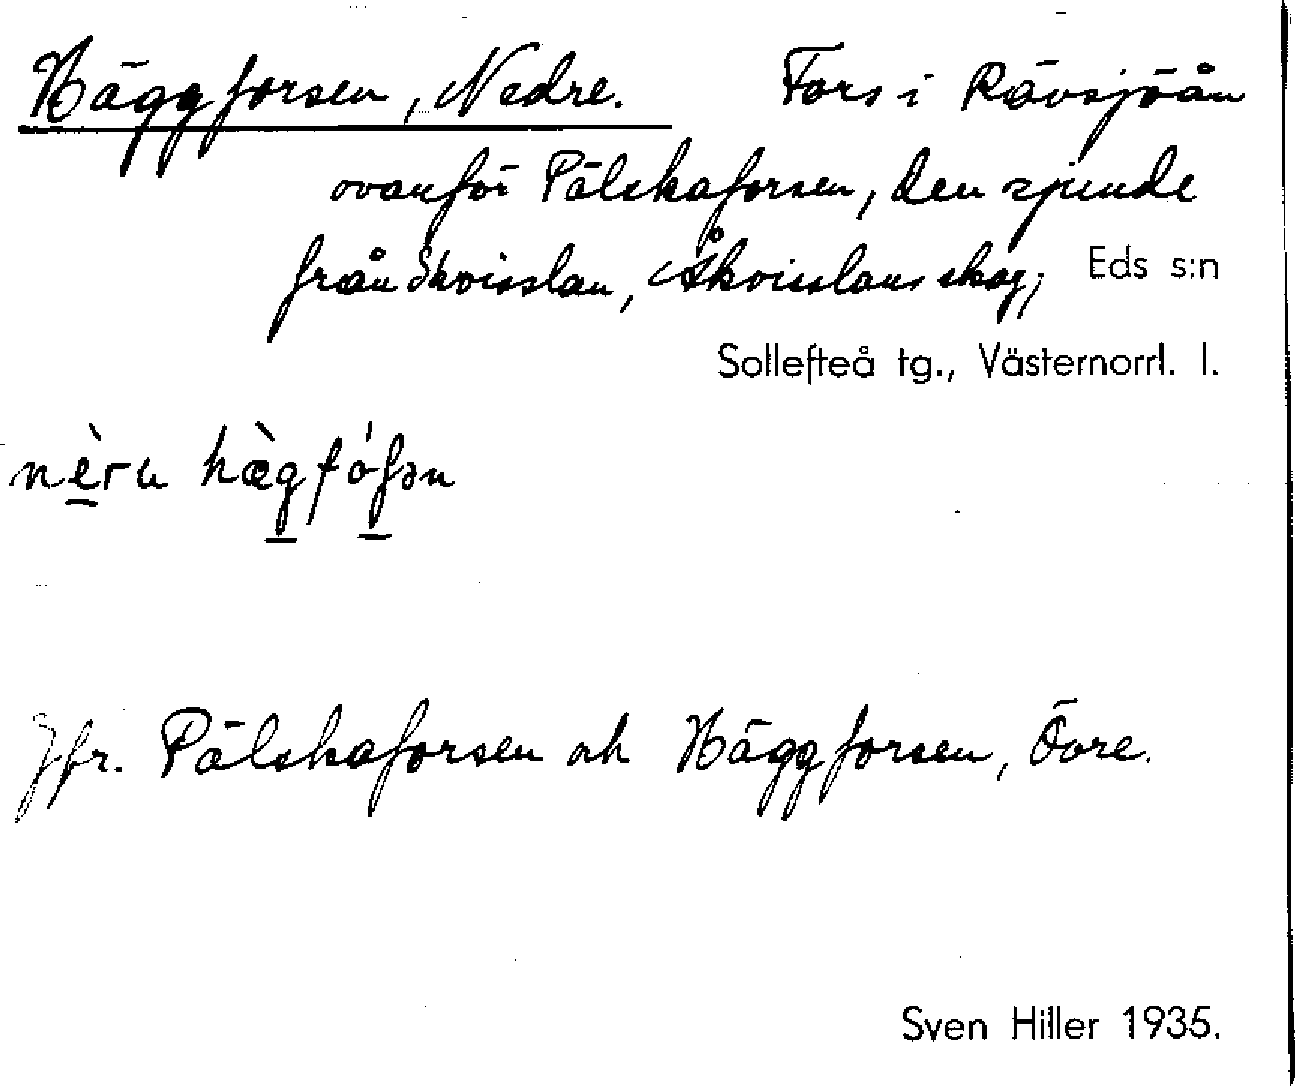 Häggforsen, Nedre. Fors i Rävsjöån
ovanför Pälskaforsen, den sjunde
från Åkvisslan, Åkvisslans skog; Eds s:n
Sollefteå tg., Västernorrl. l.
Jfr. Pälskaforsen och Häggforsen, Övre.
Sven Hiller 1935.